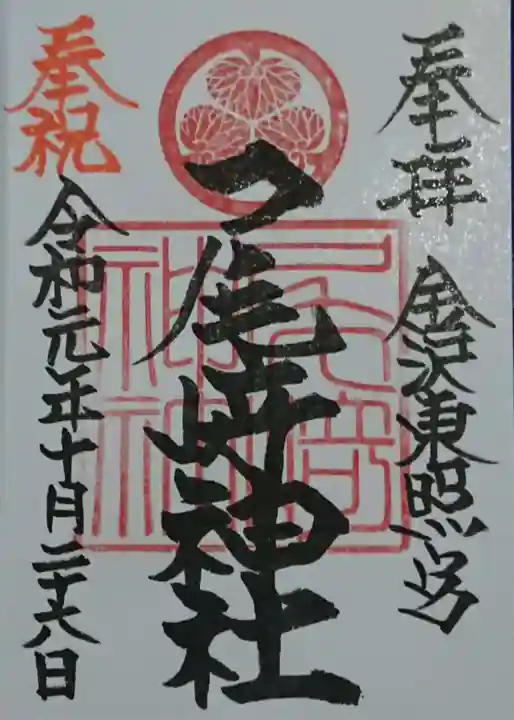 奉拝
金沢東照宮
尾崎神社
尾崎神社
奉祝
令和元年十月二十六日